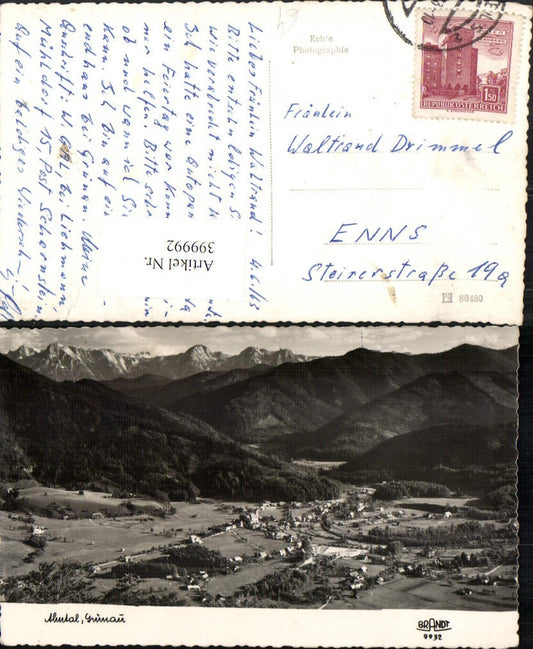 Echte
Photographie
REPUBLIK ÖSTERREICH
1.50
Fräulein
Waltraud Drimmel
ENNS
Steirerstraße 19a
86480
Artikel Nr.
399992
Liebes Fräulein Waltraud! 4/6/63
Bitte entschuldigen S
Wie verabredet nicht k
Ich hatte eine Autopan
ein Feiertag war konn
mir helfen. Bitte schr
ob und wann ich Sie
kann. Ich bin auf ein
endhaus bei Grünau. Meine
Anschrift: W. bei Liehmann
Mühldorf 15, Post Scharnstein
Auf ein baldiges Wiederseh-!
Almtal, Grünau
BRANDT
9952